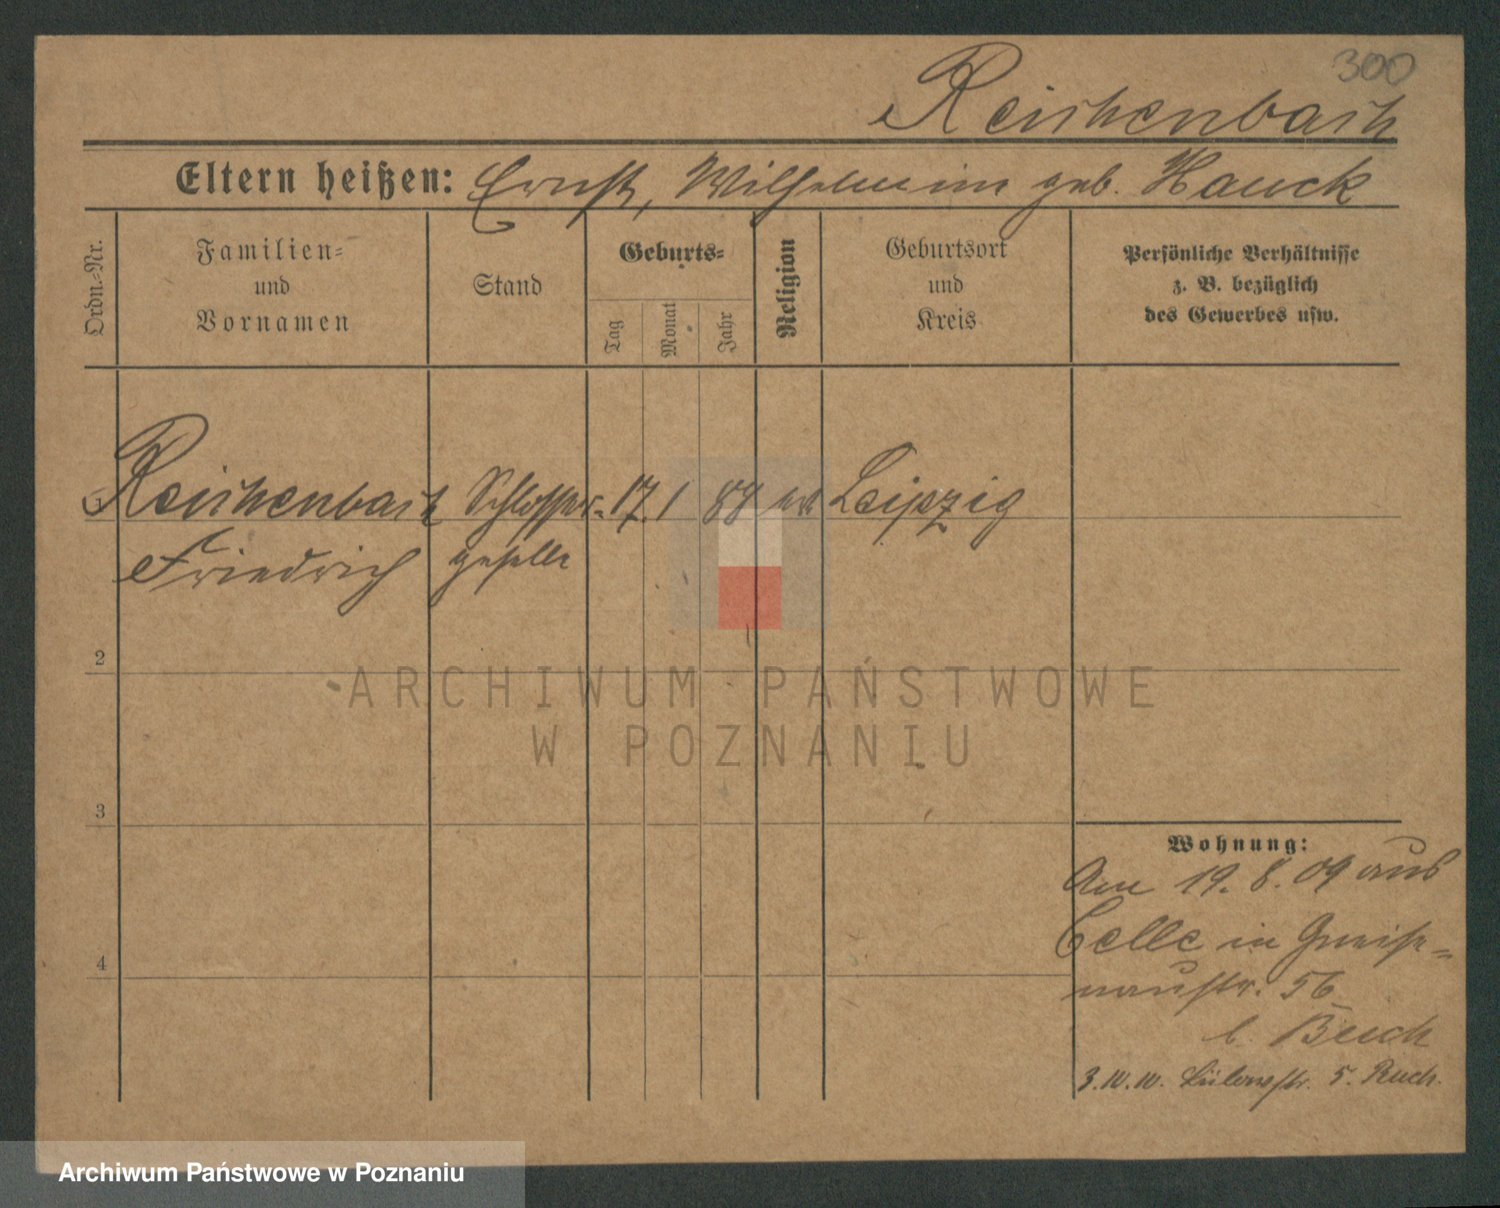 300
Reichenbach
Eltern heißen: Ernst, Wilhelmine geb. Hauck
Ordn.-Nr.
Familien-
und
Vornamen
Stand
Geburts-
Tag
Monat
Jahr
Religion
Geburtsort
und
Kreis
Persönliche Verhältnisse
z. B. bezüglich
des Gewerbes usw.
1 Reichenbach Schlosser- 17. 1 88 Leipzig
Friedrich geselle
2
3
4
Wohnung:
Am 19. 8. 09 aus
Celle in Gneise-
naustr. 56
b.
3.10.10. Bülowstr. 5.
ARCHIWUM PAŃSTWOWE
W POZNANIU
Archiwum Państwowe w Poznaniu